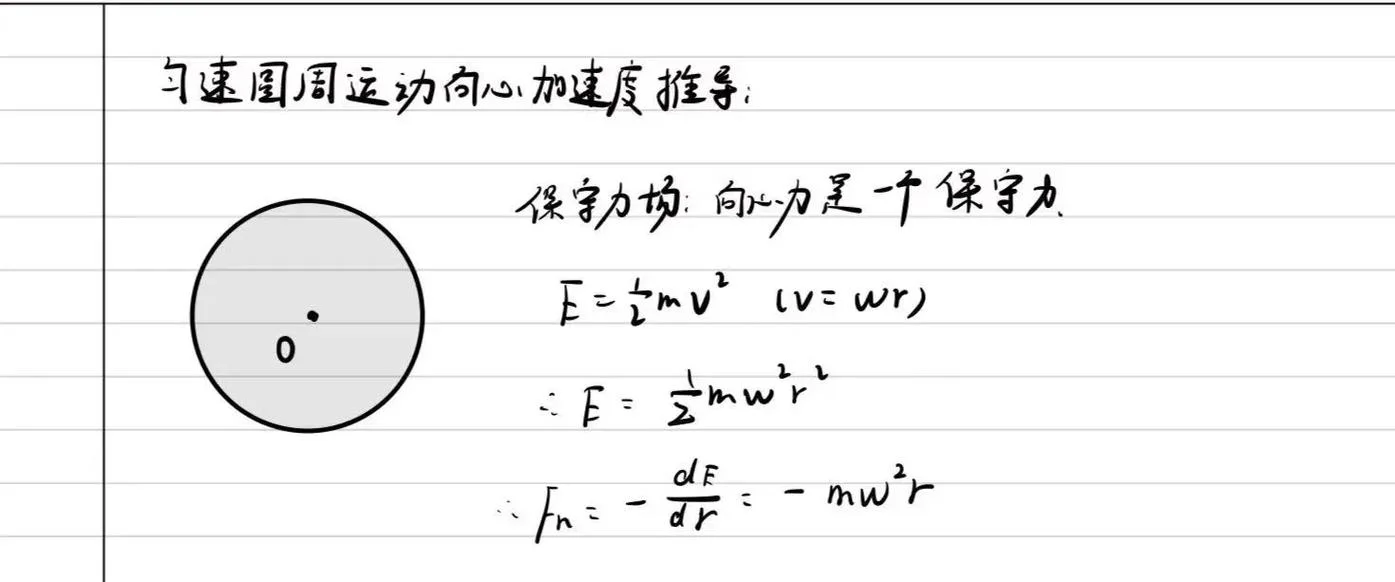 匀速圆周运动向心加速度推导:
保守力场: 向心力是一个保守力.
E = 1/2 mv² (v = wr)
O
∴ E = 1/2 mw²r²
∴ Fn = - dE/dr = - mw²r